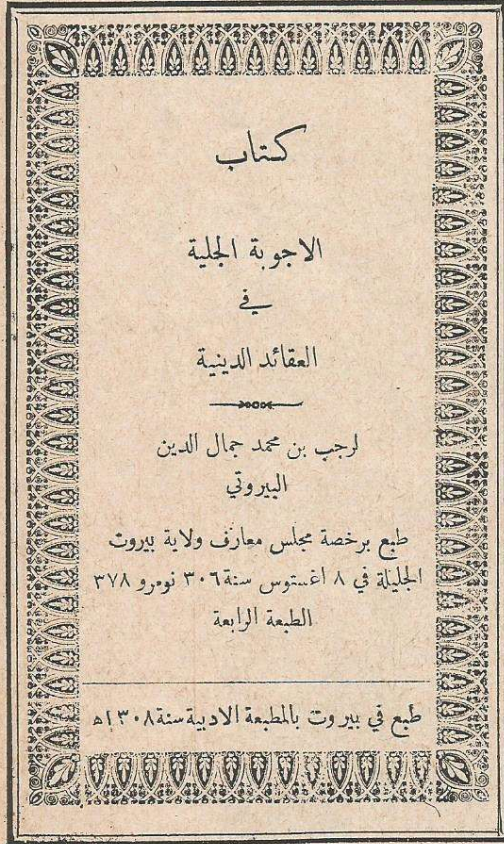 كتاب
الاجوبة الجلية
في
العقائد الدينية
لرجب بن محمد جمال الدين
البيروتي
طبع برخصة مجلس معارف ولاية بيروت
الجليلة في ٨ اغستوس سنة ٣٠٦ نومرو ٣٧٨
الطبعة الرابعة
طبع في بيروت بالمطبعة الادبية سنة ١٣٠٨ه